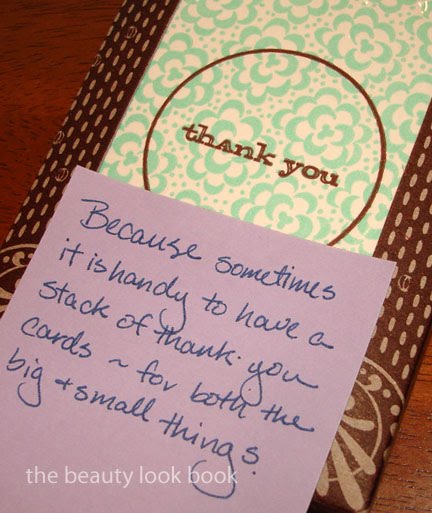 thank you
Because sometimes
it is handy to have a
stack of thank.you
cards ~ for both the
big + small things.
the beauty look book